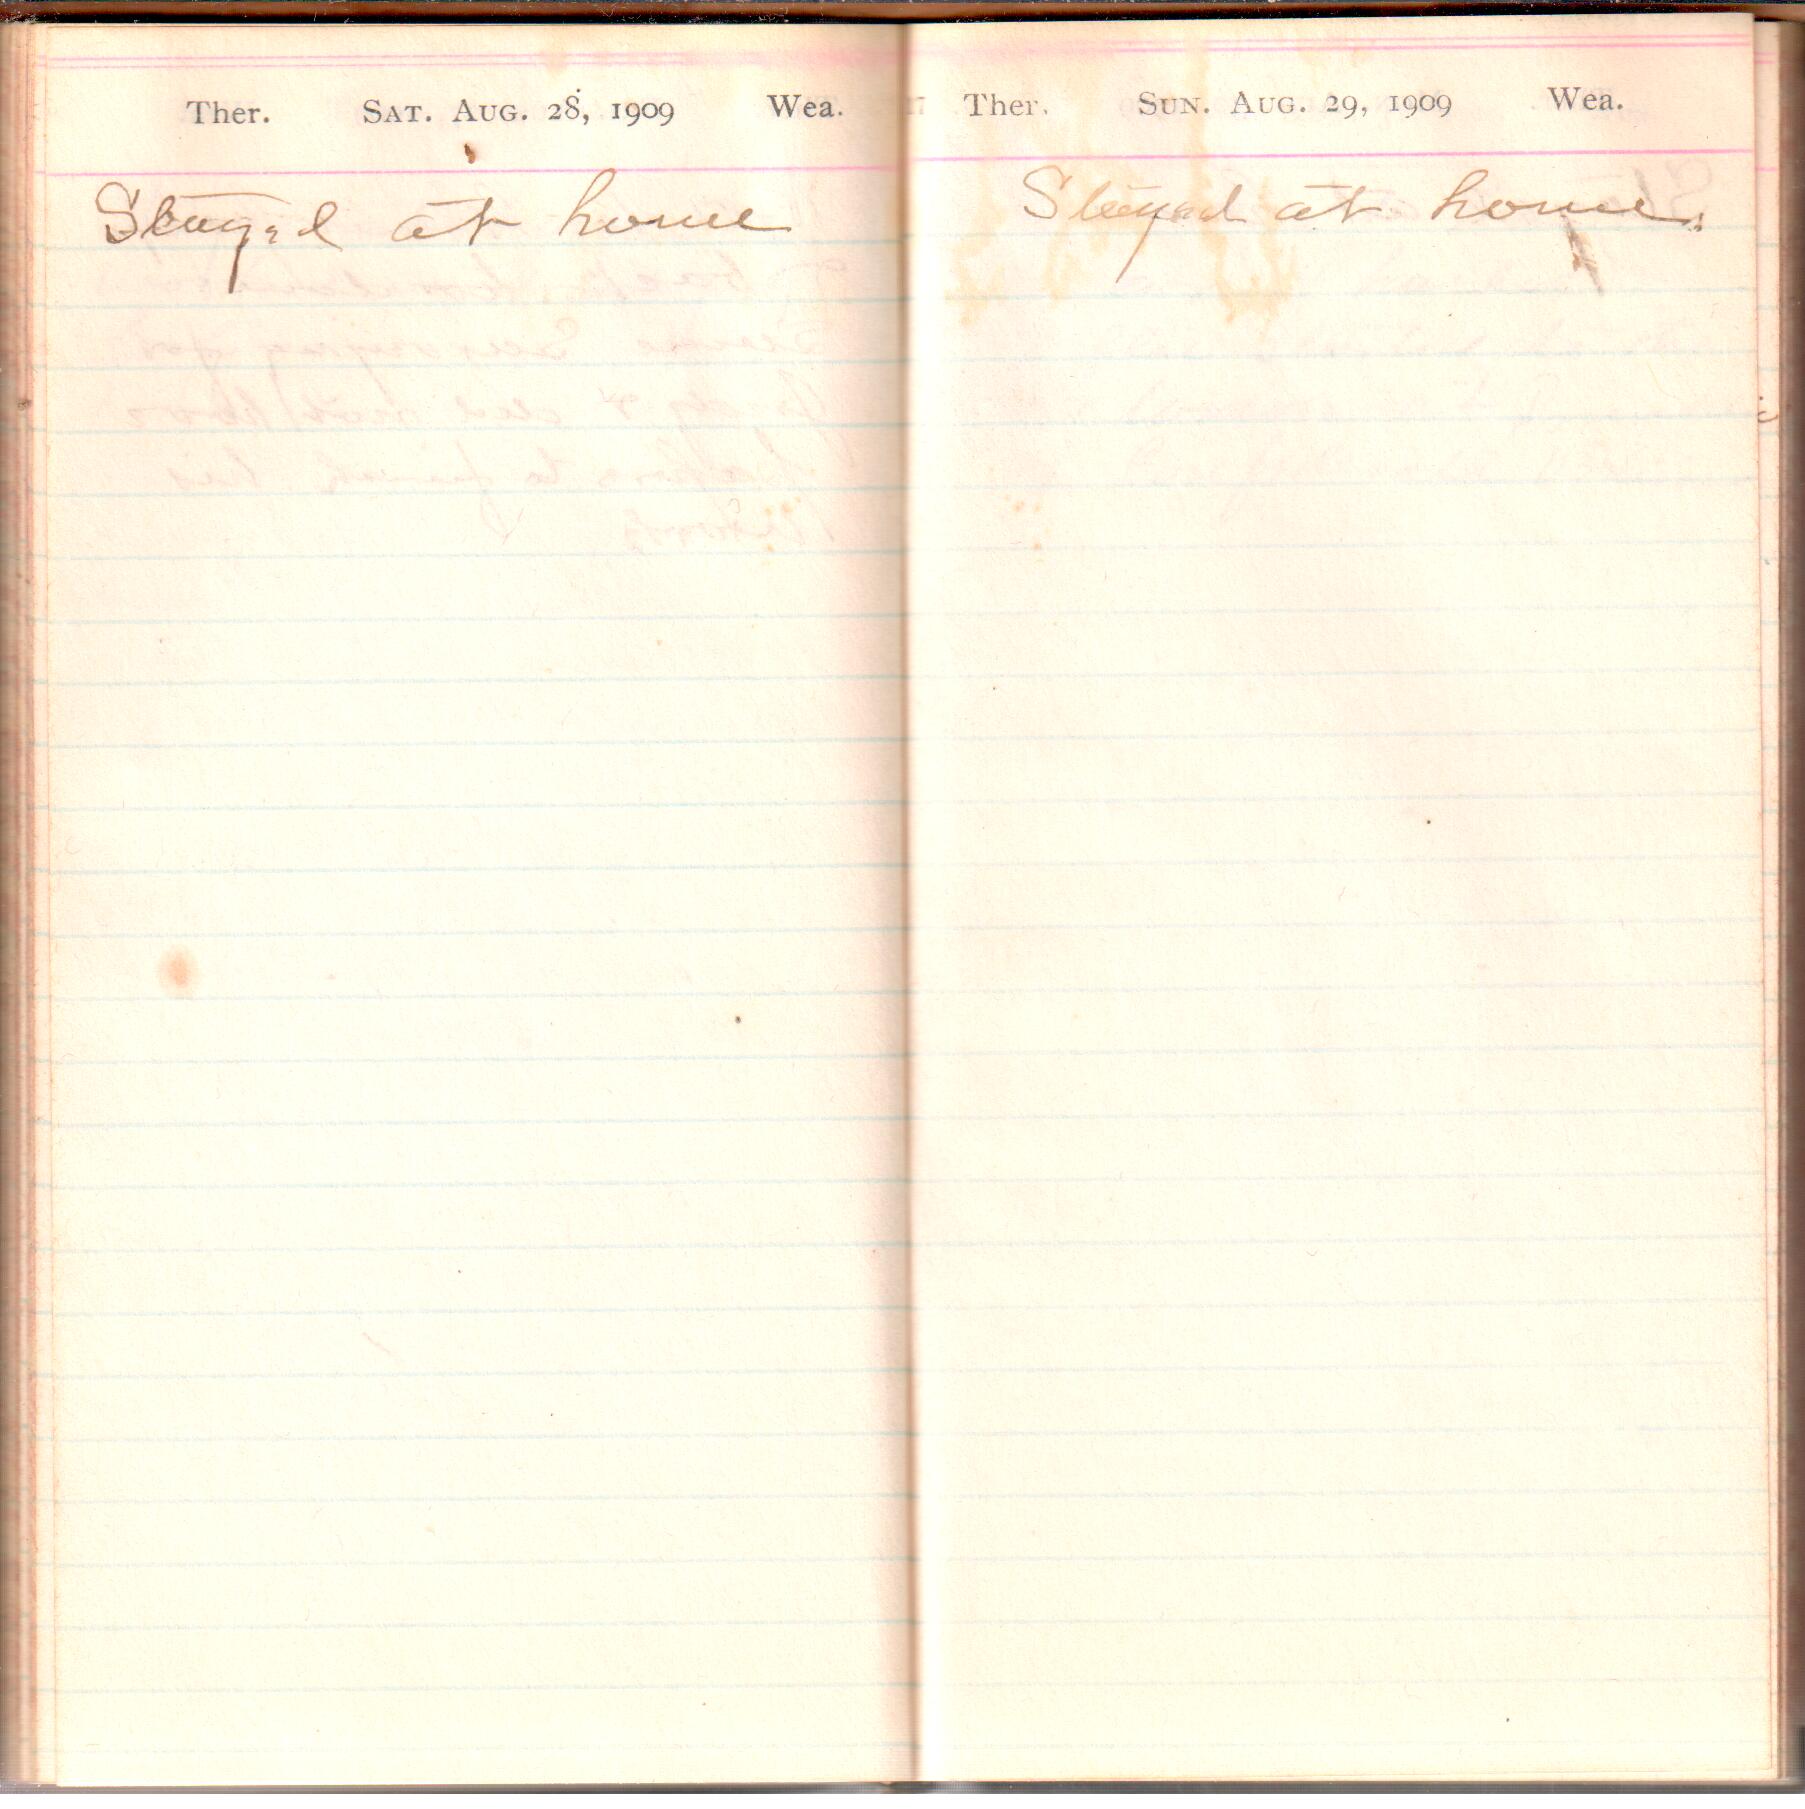 Ther. Sat. Aug. 28, 1909 Wea.
Stayed at home
Ther. Sun. Aug. 29, 1909 Wea.
Stayed at home.